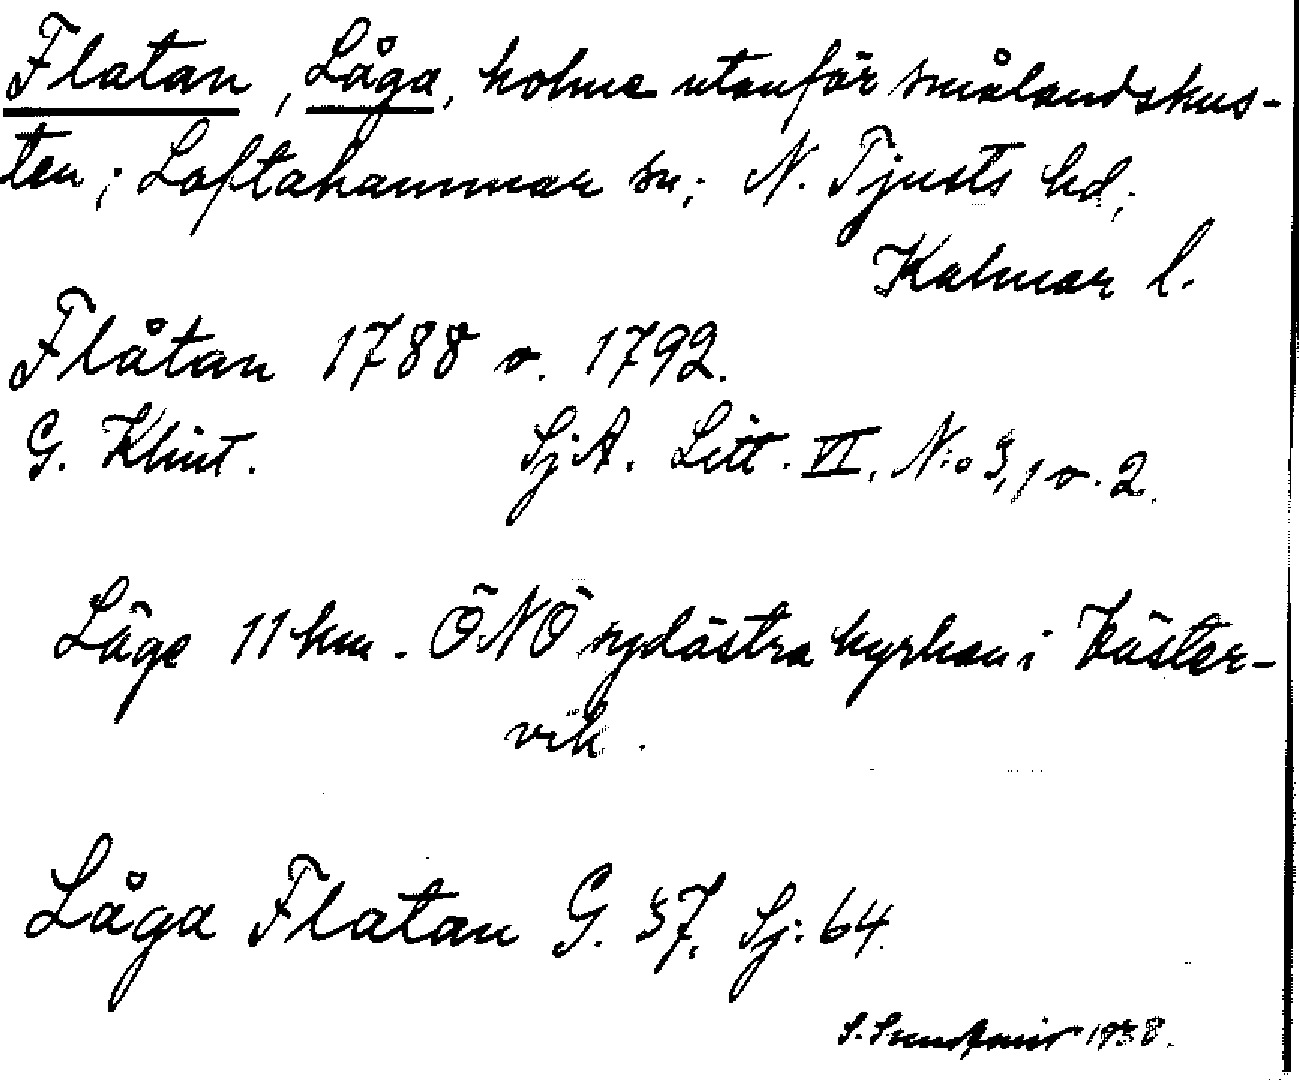 Flatan, Låga, holme utanför smålandskus-
ten; Loftahammar sn; N. Tjusts hd;
Kalmar l.
Flåtan 1788 o. 1792.
G. Klint. SjA. Litt. VI. N:o 3, 1 o. 2.
Läge 11 km. ÖNÖ sydöstra kyrkan i Väster-
vik.
Låga Flatan G. 57. Sj: 64.
S. 1938.